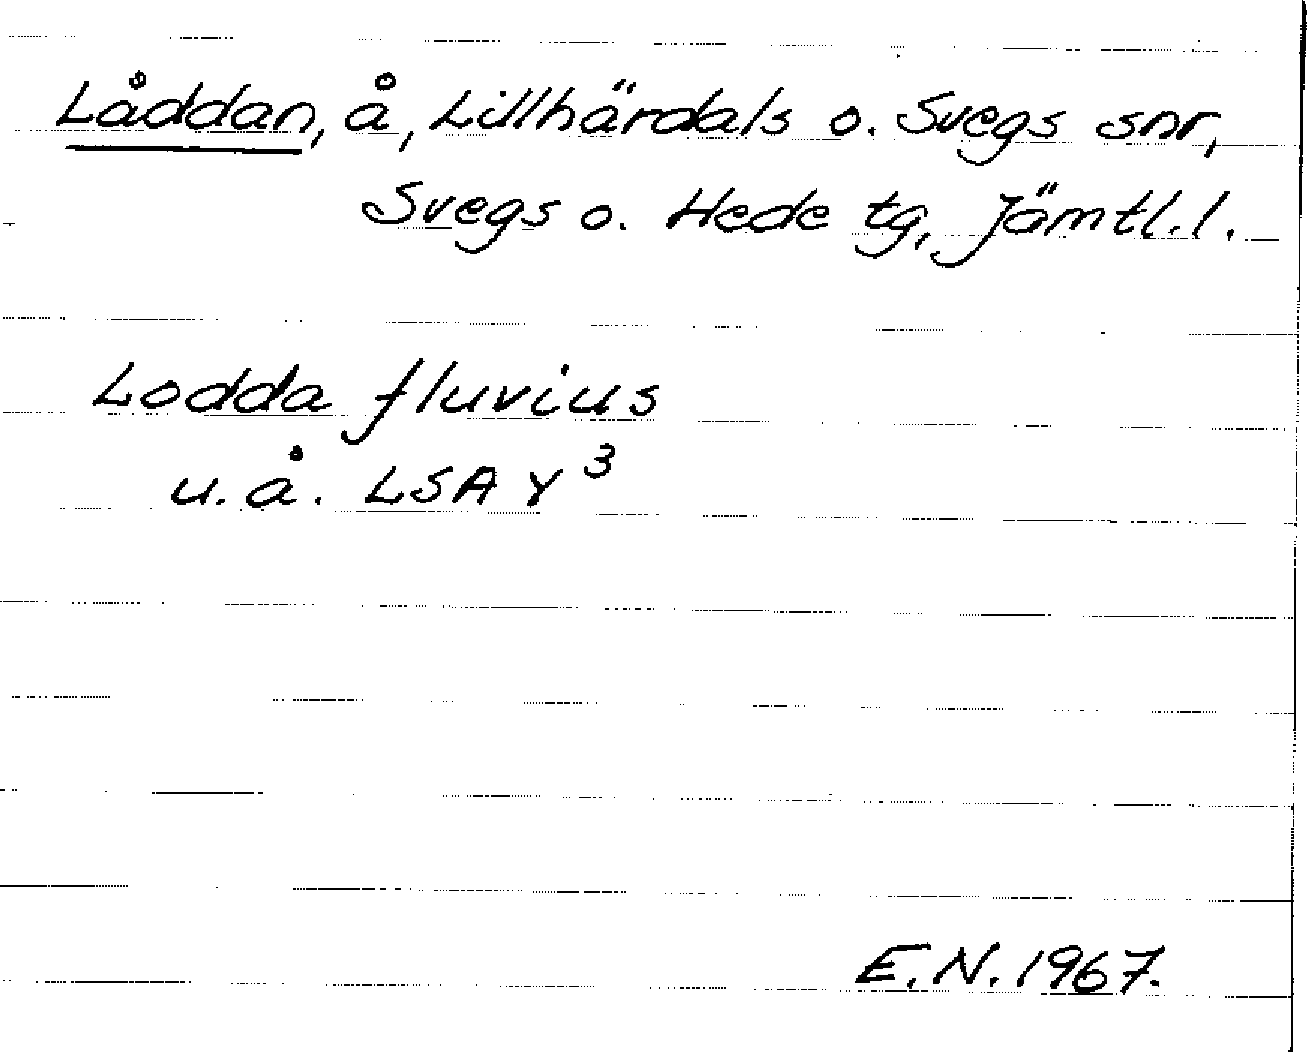 Låddan, å, Lillhärdals o. Svegs snr,
Svegs o. Hede tg, Jämtl.l.
Lodda fluvius
u.å. LSA Y³
E.N. 1967.